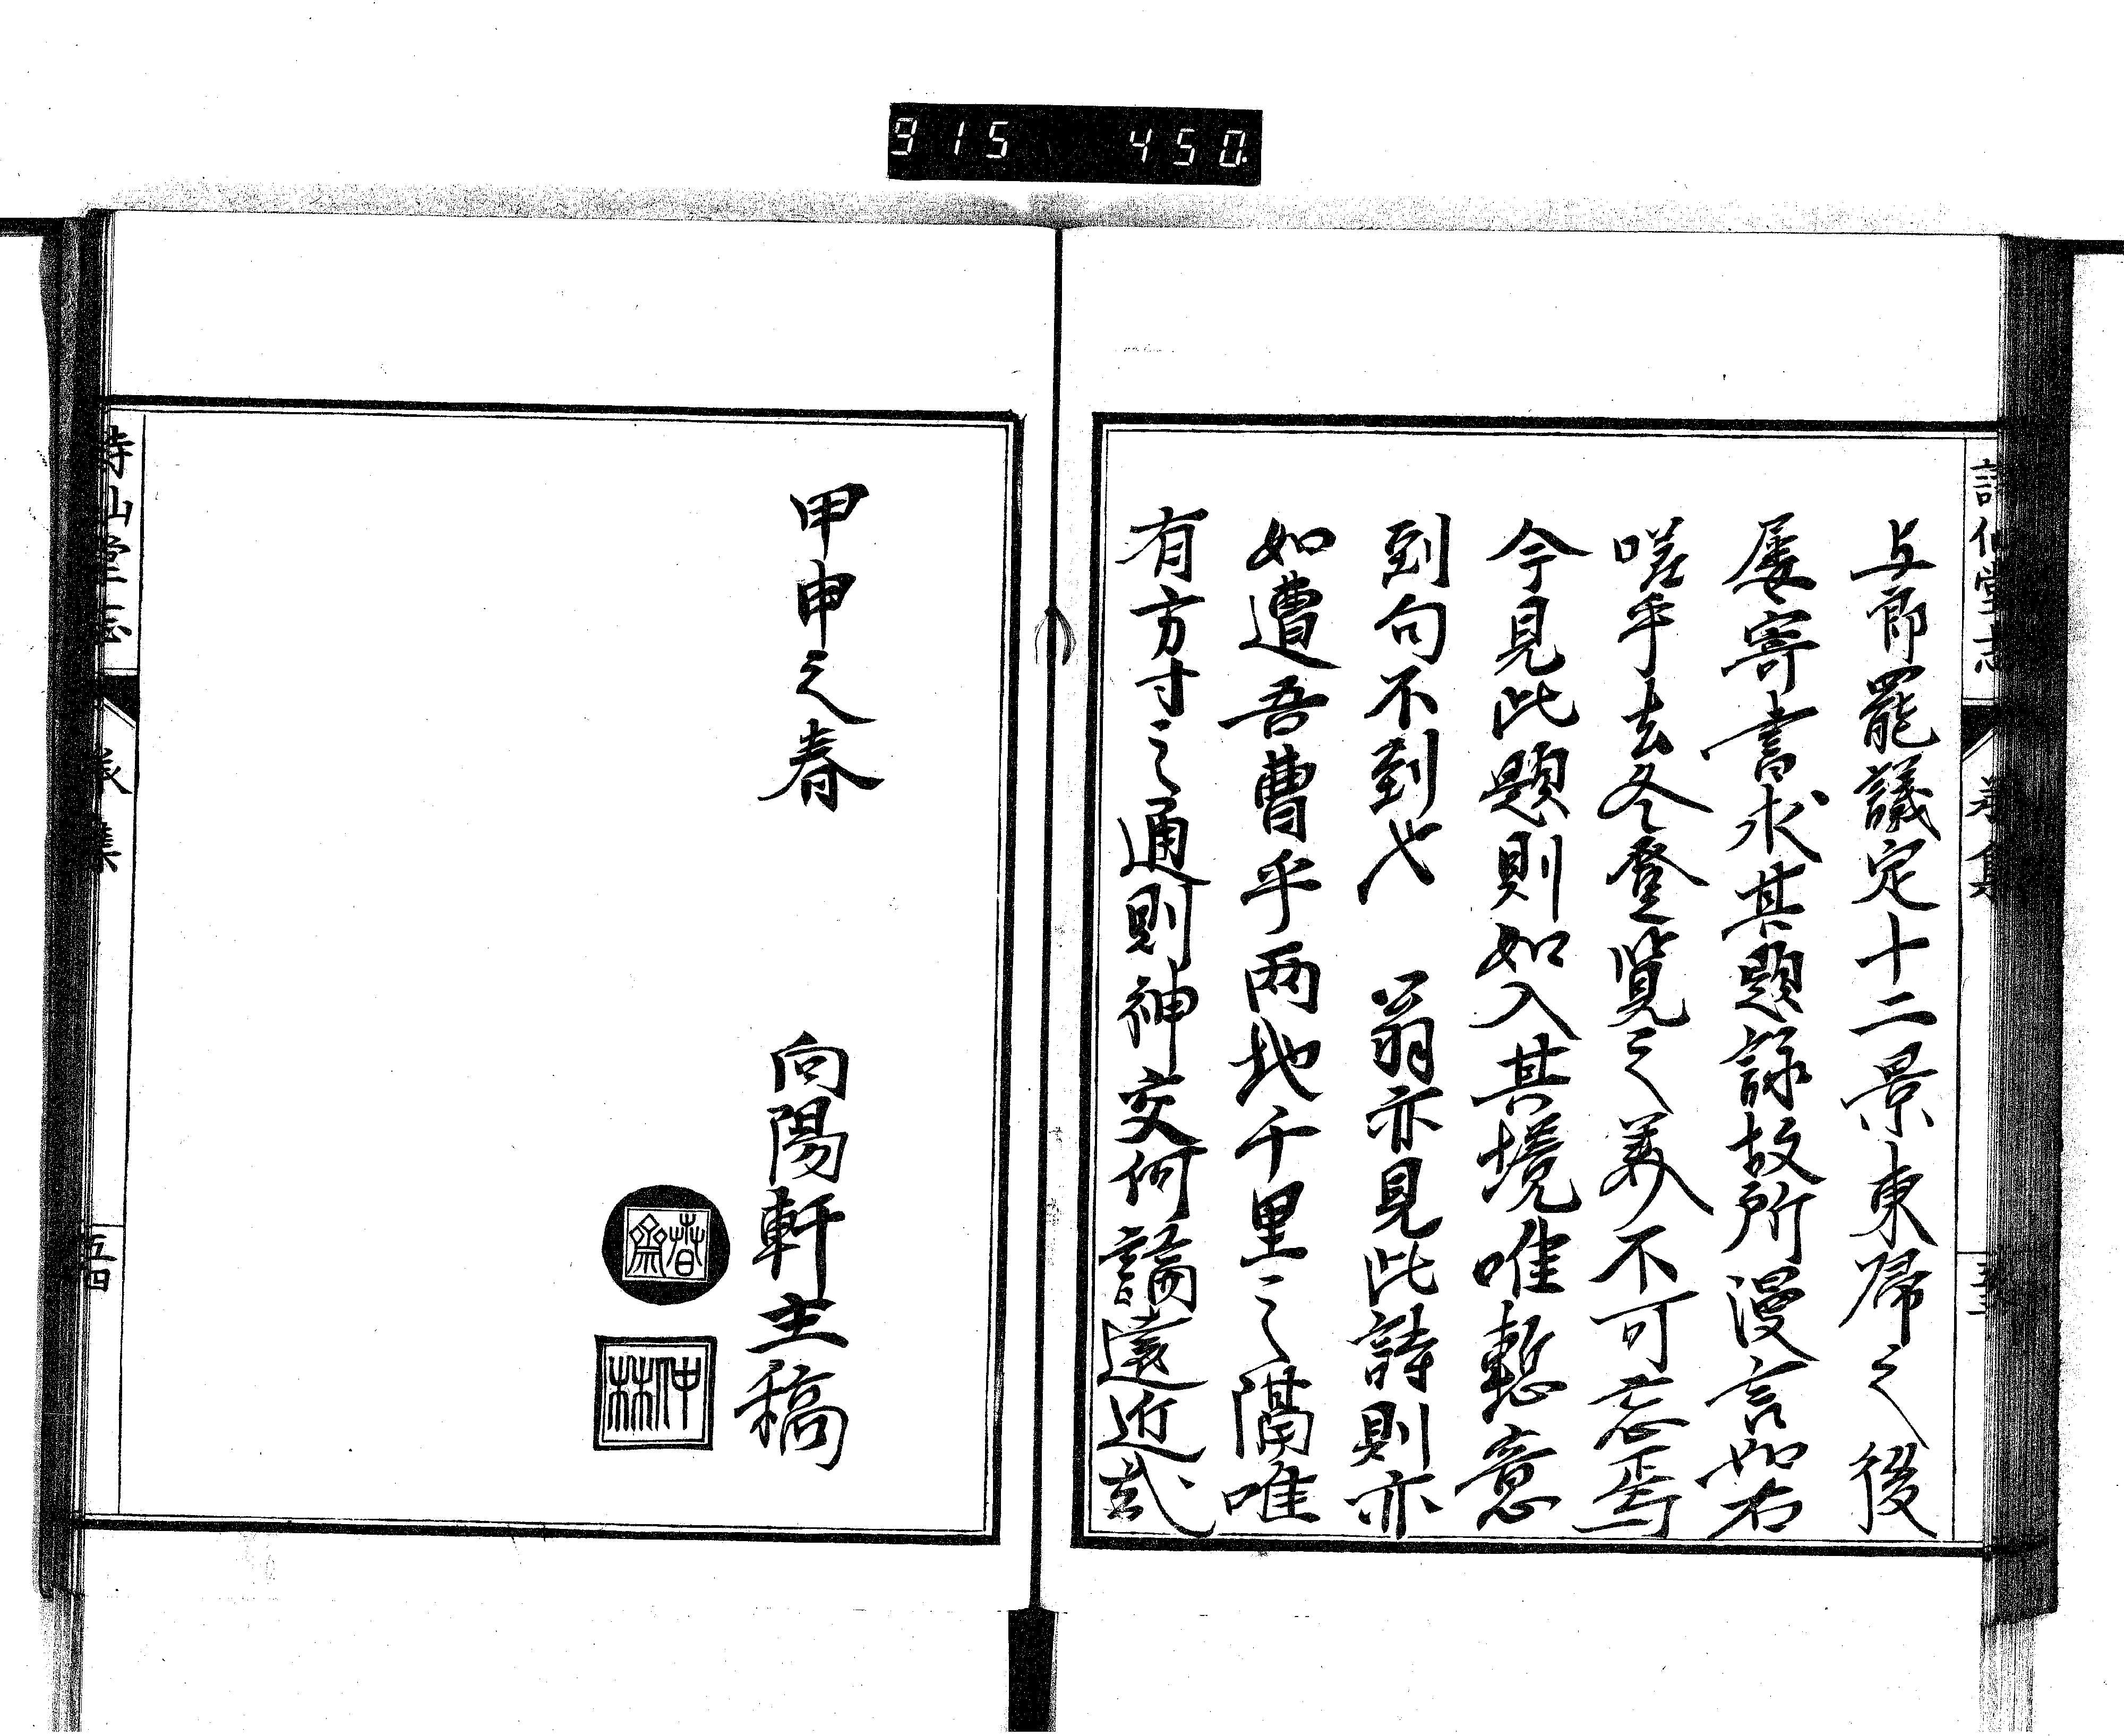 915 450
詩仙堂志
与節罷議定十二景東帰之後
屡寄書求其題詠故所漫言如右
嗟乎去冬登覧之美不可忘焉
今見此題則如入其境唯慙意
到句不到也　翁亦見此詩則亦
如遭吾曹乎两地千里之隔唯
有方寸之通則神交何論遠近哉
甲申之春
向陽軒主稿
春齋
仲林
詩仙堂志
集
五四